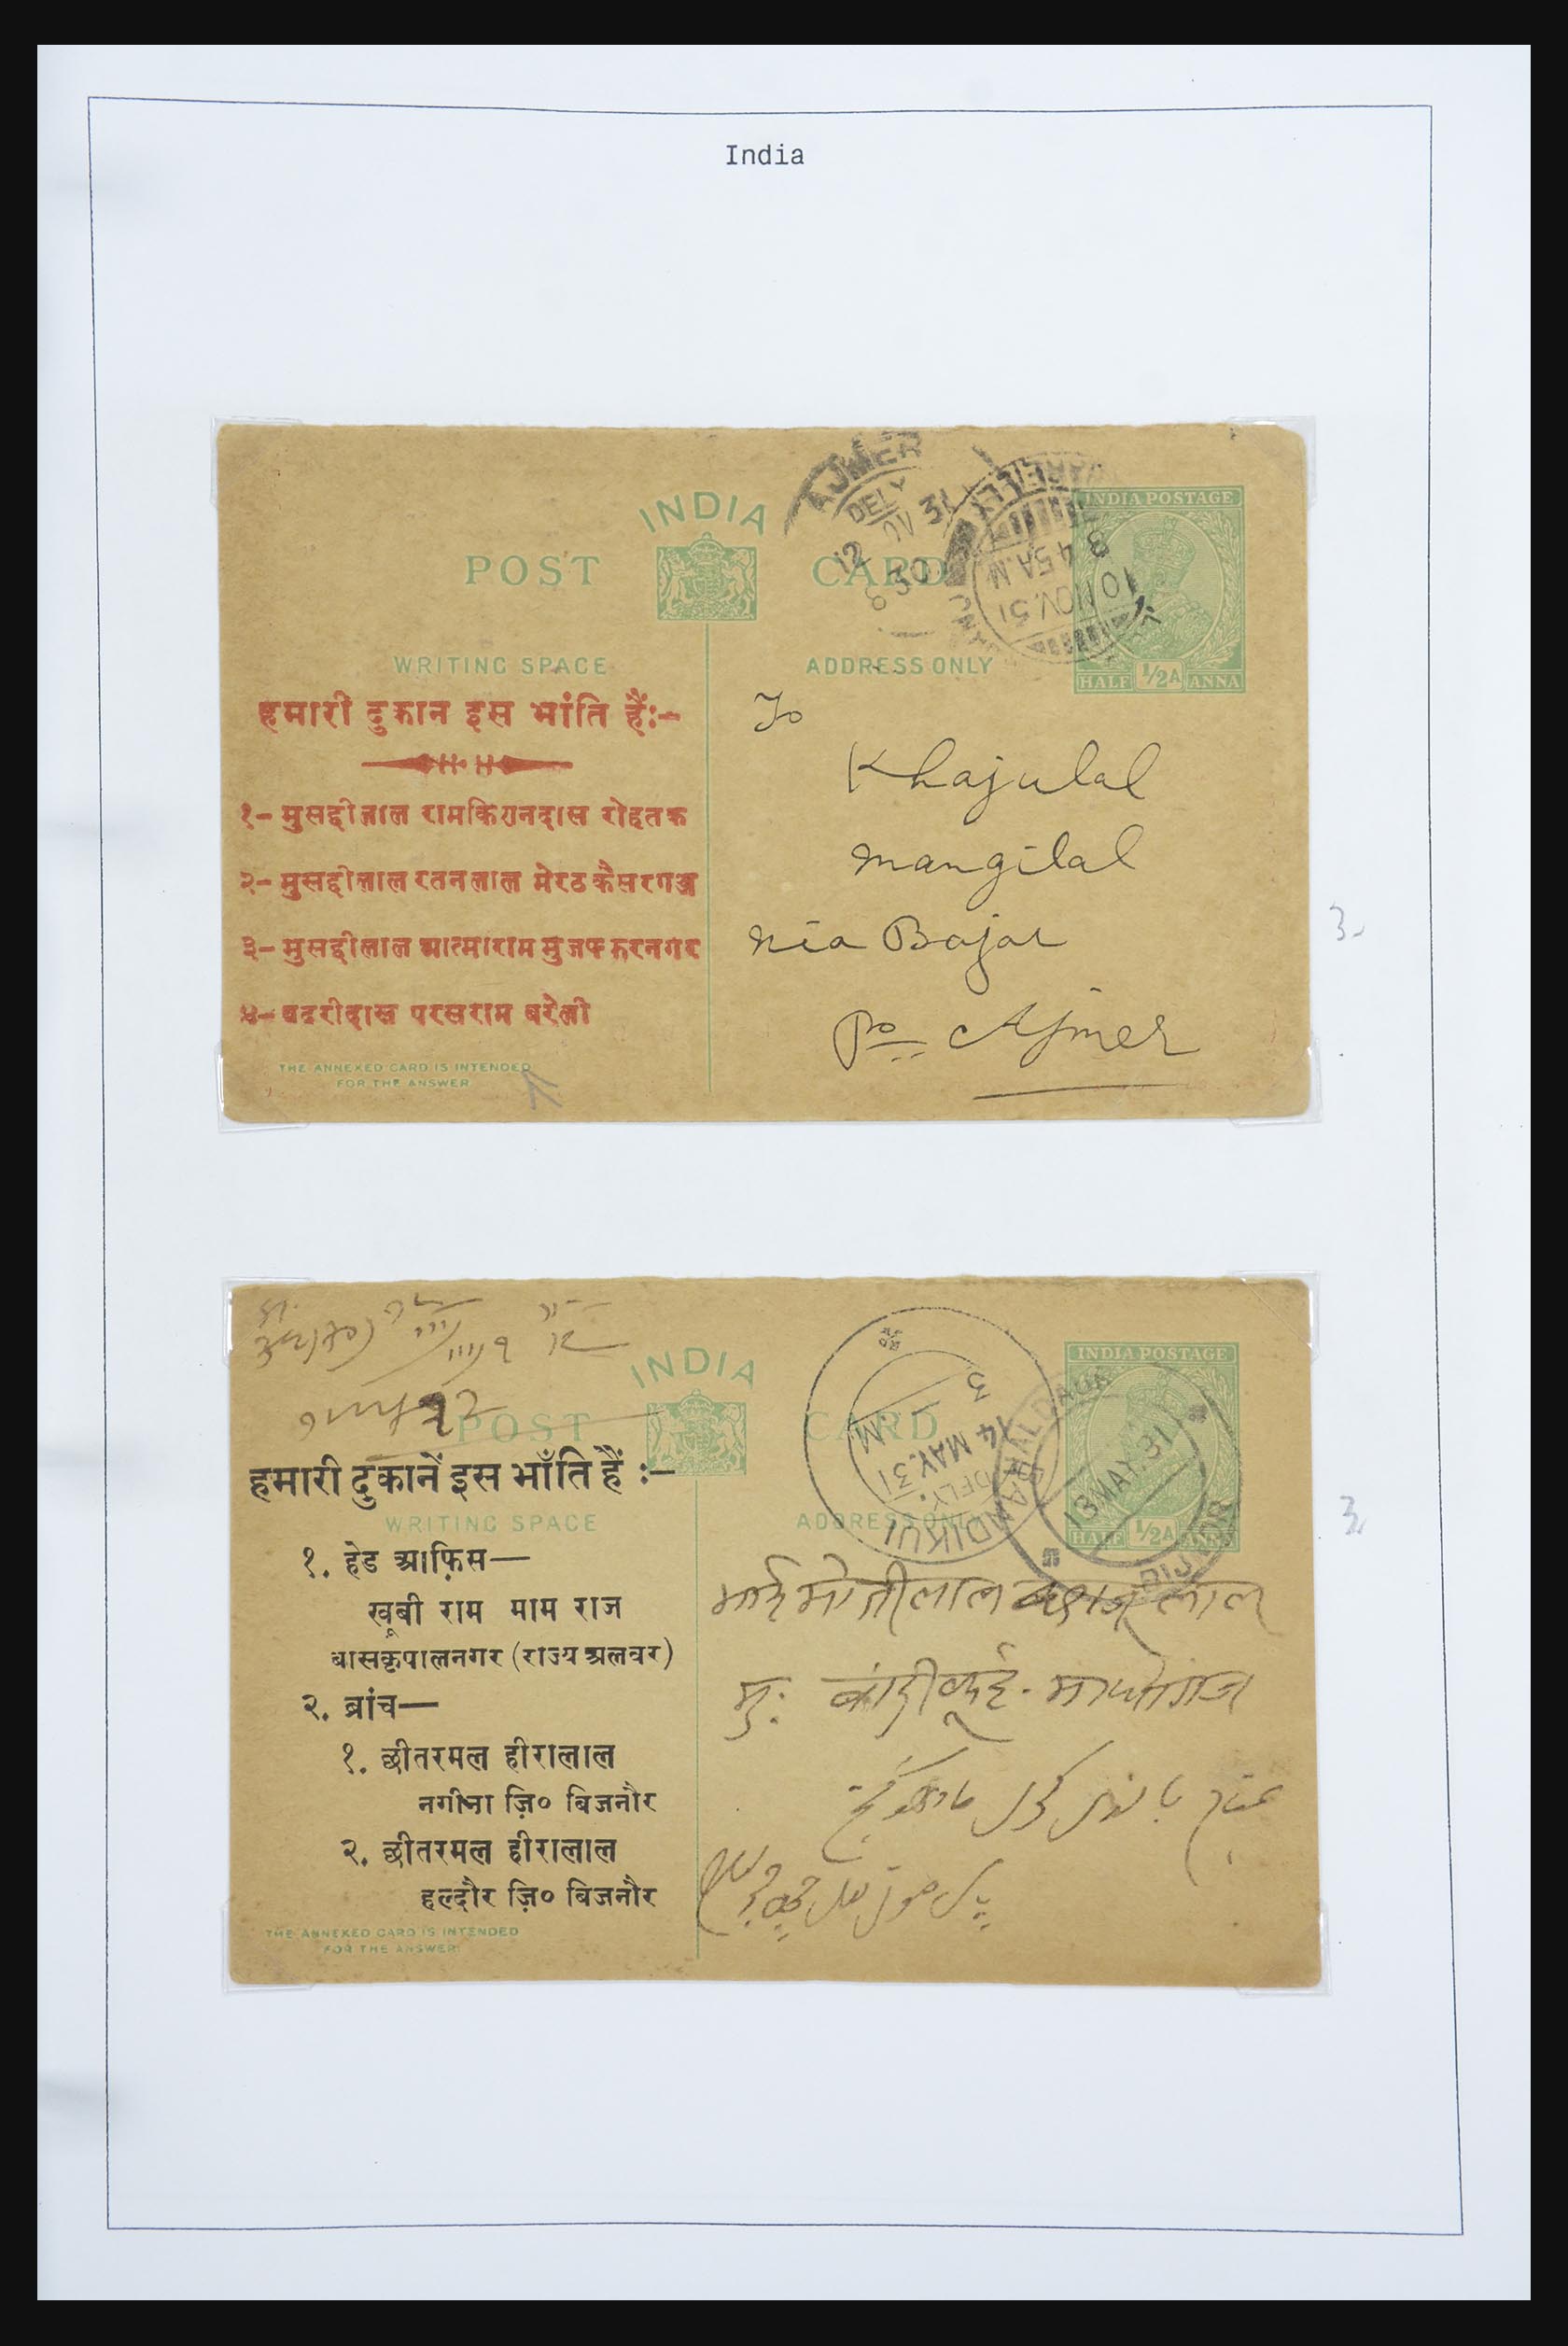 India
INDIA
POST CARD
WRITING SPACE
ADDRESS ONLY
INDIA POSTAGE
HALF ½A ANNA
AJMER
DELY
12 NOV 31
8 30
8 45 A.M
10 NOV. 31
हमारी दुकान इस भांति हैं:-
१- मुसद्दीलाल रामकिशनदास रोहतक
२- मुसद्दीलाल रतनलाल मेरठ कैसरगञ्ज
३- मुसद्दीलाल आत्माराम मुजफ्फरनगर
४- बदरीदास परसराम बरेली
THE ANNEXED CARD IS INTENDED
FOR THE ANSWER
To
Khajulal
Mangilal
Nia Bajar
Po Ajmer
3-
INDIA
POST CARD
WRITING SPACE
ADDRESS ONLY
INDIA POSTAGE
HALF ½A
BANDIKUI
DELY.
14 MAY.31
3
M
HALDAUR
13 MAY.31
BIJNOR
हमारी दुकानें इस भाँति हैं :—
१. हेड आफ़िस—
खूबी राम माम राज
बासकृपालनगर (राज्य अलवर)
२. ब्रांच—
१. छीतरमल हीरालाल
नगीना ज़ि० बिजनौर
२. छीतरमल हीरालाल
हल्दौर ज़ि० बिजनौर
THE ANNEXED CARD IS INTENDED
FOR THE ANSWER
भाई मोतीलाल लाल
मु: बांदीकुई - माधोगंज
3